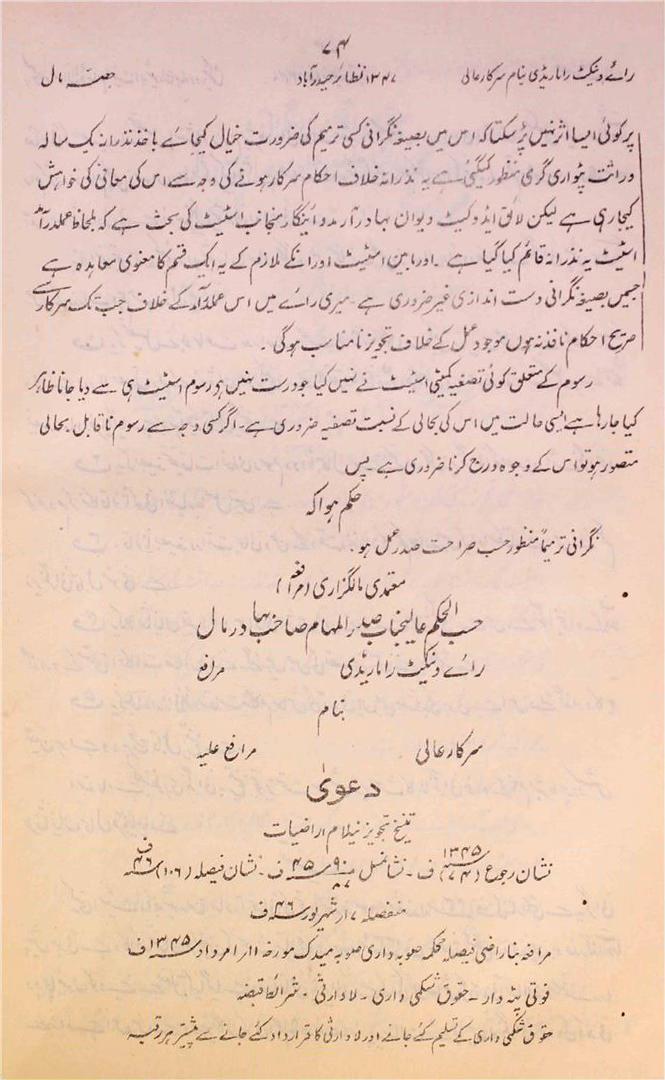 ۷۴
رائے ونیکٹ راماریڈی بنام سرکارعالی ۱۳۴۷ نظائر حیدرآباد حصۂ مال
پرکوئی ایسا اثر نہیں پڑسکتا کہ اس میں بصیغۂ نگرانی کسی ترمیم کی ضرورت خیال کیجائے باخذ نذرانہ یک سالہ
وراثت پٹواری گری منظور کیگئی ہے یہ نذرانہ خلاف احکام سرکار ہونے کی وجہ سے اس کی معافی کی خواہش
کیجارہی ہے لیکن لائق ایڈوکیٹ دیوان بہادر آرمدو ائینگار منجانب اسٹیٹ کی بحث ہے کہ بلحاظ عملدرآمد
اسٹیٹ یہ نذرانہ قائم کیا گیا ہے ۔ اور مابین اسٹیٹ اور انکے ملازم کے یہ ایک قسم کا معنوی معاہدہ ہے
جسمیں بصیغۂ نگرانی دست اندازی غیر ضروری ہے ۔ میری رائے میں اس عملدرآمد کے خلاف جب تک سرکار سے
صریح احکام نافذ نہ ہوں موجودہ عمل کے خلاف تجویز نامناسب ہوگی ۔
رسوم کے متعلق کوئی تصفیہ کمیٹی اسٹیٹ نے نہیں کیا جو درست نہیں ہے رسوم اسٹیٹ ہی سے دیا جانا ظاہر
کیا جارہا ہے ایسی حالت میں اس کی بحالی کے نسبت تصفیہ ضروری ہے ۔ اگر کسی وجہ سے رسوم ناقابل بحالی
متصور ہو تو اس کے وجوہ درج کرنا ضروری ہے ۔ پس
حکم ہوا کہ
نگرانی ترمیماً منظور حسب صراحت صدر عمل ہو ۔
معتمدی مالگزاری (مرافعہ)
حسب الحکم عالیجناب صدرالمہام صاحب بہادر مال
رائے ونیکٹ راماریڈی مرافع
بنام
سرکار عالی مرافع علیہ
دعویٰ
تنسیخ تجویز نیلام اراضیات
نشان رجوع (۷۴) ۱۳۴۵ ف ۔ نشانمثل ۹۰ ۴۵ ف ۔ نشان فیصلہ (۱۰۶) ۴۶ ف
منفصلہ ۷ ار شہریور ۴۶ ف
مرافعہ بناراضی فیصلہ محکمہ صوبہ داری صوبہ میدک مورخہ ۱۱ر امرداد ۱۳۴۵ ف
فوتی پٹہ دار ۔ حقوق شکمی داری ۔ لاوارثی ۔ شرائط قبضہ
حقوق شکمی داری کے تسلیم کئے جانے اور لاوارثی کا قرارداد کئے جانے سے پیشتر ہر رقبہ